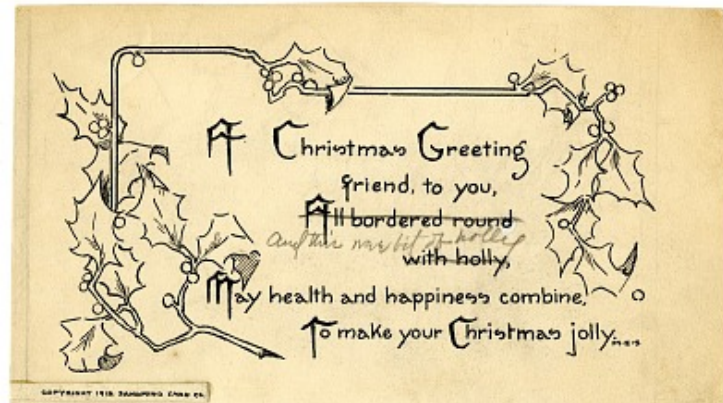 A Christmas Greeting
friend, to you,
All bordered round
And this wee bit of holly
with holly,
May health and happiness combine,
To make your Christmas jolly.
COPYRIGHT 1912 CARD CO.